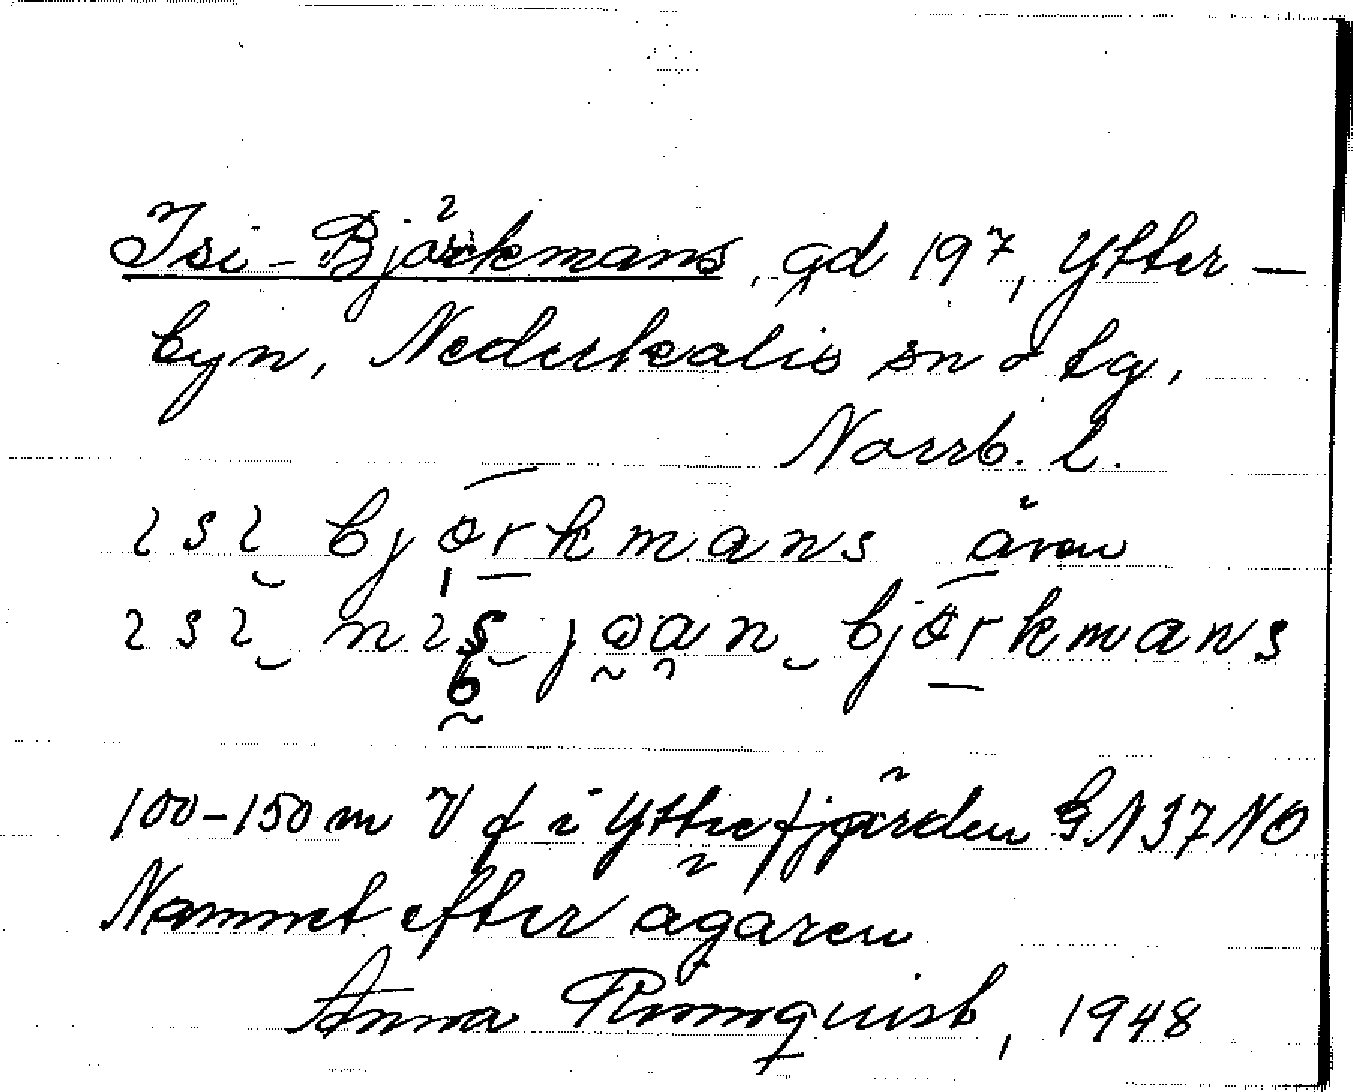 Isi-Björkmans, gd 19⁷, Ytter-
byn, Nederkalix sn o tg,
Norrb. l.
ısı bjørkmans även
ısı nıs joan bjørkmans
100-150 m V f i Ytterfjärden GN37NO
Namnet efter ägaren
Anna Rönnquist, 1948